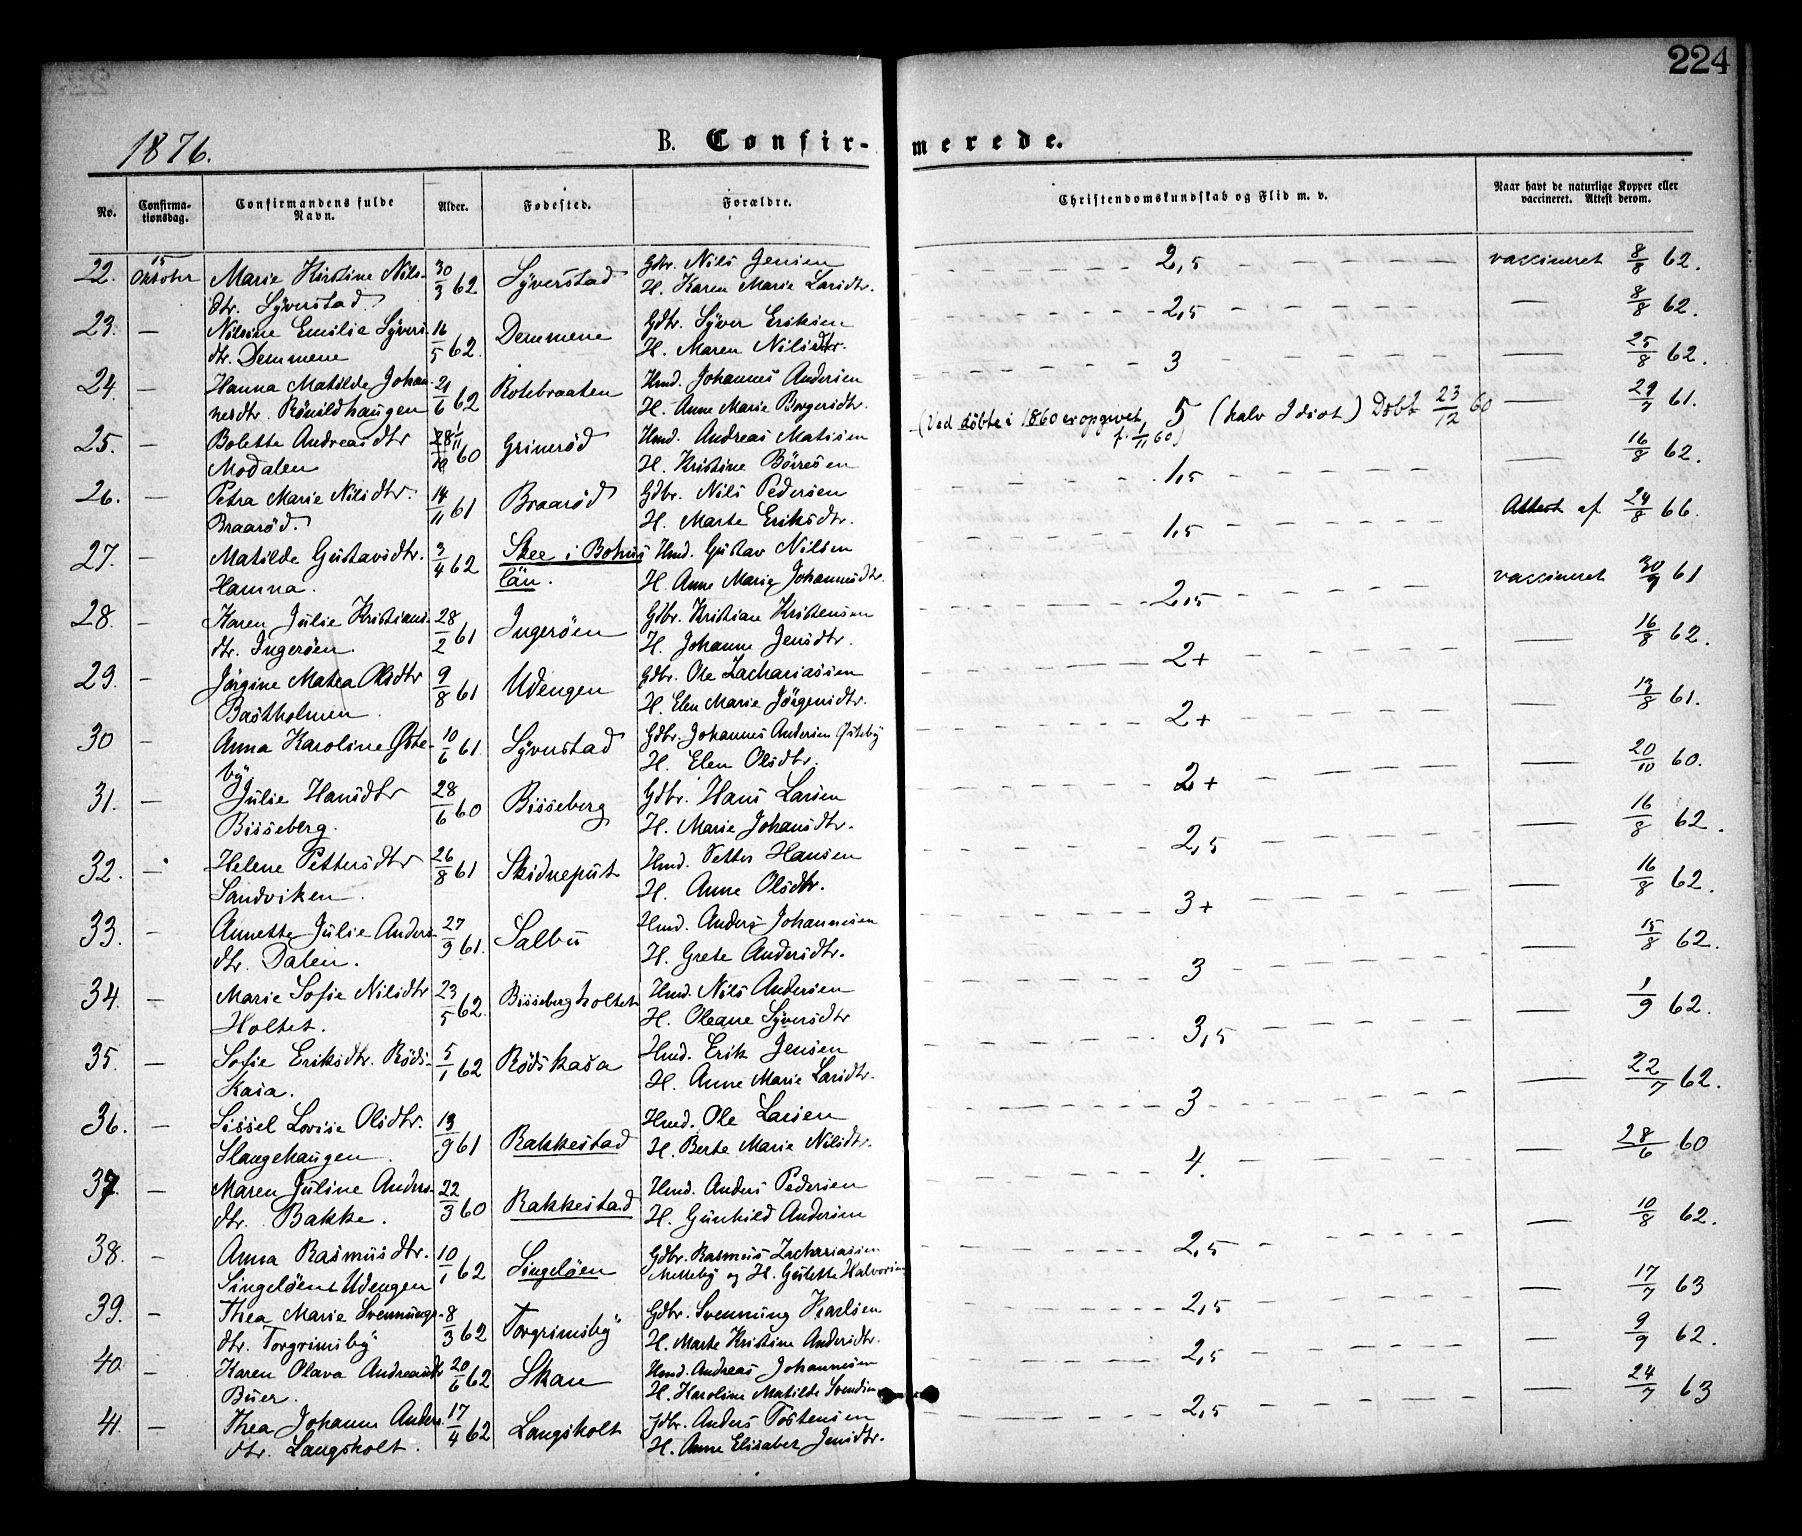 224
1876.
B. Confir-merede.
No.
Confirma-tionsdag.
Confirmandens fulde Navn.
Alder.
Fødested.
Forældre.
Christendomskundskab og Flid m. v.
Naar havt de naturlige Kopper eller vaccineret. Attest derom.
22. 15 Oktober Marie Kirstine Nils- 30/3 62 Syverstad Gdbr. Nils Jensen 2,5 vaccineret 8/8 62.
dtr. Syverstad H. Karen Marie Larsdtr.
23. — Nilsine Emilie Syvers- 16/5 62. Demmene Gdbr. Syver Eriksen 2,5 — 8/8 62.
dtr. Demmene H. Maren Nilsdtr.
24. — Hanna Matilde Johan- 21/6 62 Botebraaten Hmd. Johannes Andersen 3 — 25/8 62.
nesdtr. Rönildhaugen H. Anne Marie Borgersdtr.
25. — Bolette Andreasdtr 1/11 60 Grimerød Hmd. Andreas Matisen (Ved døbte i 1860 er opgivet f. 1/11 60) 5 (halv Idiot) Døbt 23/12 60 — 29/7 61.
Modalen H. Kristine Börresen
26. — Petra Marie Nilsdtr. 14/11 61 Braarød Gdbr. Nils Pedersen 1,5 — 16/8 62.
Braarød. H. Marte Eriksdtr.
27. — Matilde Gustavsdtr. 3/4 62 Skee i Bohus Hmd. Gustav Nilsen 1,5 Attest af 24/8 66.
Hamna. län. H. Anne Marie Johannesdtr.
28. — Karen Julie Kristians- 28/2 61 Ingerøen Gdbr. Kristian Kristensen 2,5 vaccineret 30/9 61
dtr. Ingerøen. H. Johanne Jensdtr.
29. — Jørgine Matea Olsdtr 9/8 61 Udengen Gdbr. Ole Zachariassen 2+ — 16/8 62.
Bastholmen. H. Elen Marie Jörgensdtr.
30 — Anna Karoline Øste- 10/6 61. Syverstad Gdbr. Johannes Andersen Østeby 2+ — 13/8 61.
by H. Elen Olsdtr.
31. — Julie Hansdtr 28/6 60 Bisseberg Gdbr. Hans Larsen 2+ — 20/10 60.
Bisseberg. H. Marie Johansdtr.
32. — Helene Pettersdtr 26/8 61 Skidneput Hmd. Petter Hansen 2,5 — 16/8 62.
Sandviken. H. Anne Olsdtr.
33. — Annette Julie Anders- 27/9 61. Salbu Hmd. Anders Johannesen 3+ — 16/8 62.
dtr. Dalen. H. Grete Andersdtr.
34. — Marie Sofie Nilsdtr 23/5 62. Bisseberg holtet Hmd. Nils Andersen 3 — 15/8 62.
Holtet. H. Oleane Syversdtr
35. — Sofie Eriksdtr. Röds- 5/1 62 Rødskasa Hmd. Erik Jensen 3,5 — 1/9 62.
kasa. H. Anne Marie Larsdtr.
36. — Sissel Lovise Olsdtr. 13/9 61 Rakkestad Hmd. Ole Larsen 3 — 22/7 62.
Slangehaugen. H. Berte Marie Nilsdtr.
37. — Maren Juline Anders- 22/3 60 Rakkestad Hmd. Anders Pedersen 4. 28/6 60
dtr. Bakke. H. Gunhild Andersen
38. — Anna Rasmusdtr. 10/1 62 Singeløen Gdbr. Rasmus Zachariassen 2,5 — 10/8 62.
Singelöen Udengen Melleby og H. Gulette Halvorsen
39. — Thea Marie Svennungs- 8/3 62 Torgrimsby Gdbr. Svennung Karlsen 2,5 — 17/7 63
dtr. Torgrimsby H. Marte Kristine Andersdtr.
40. — Karen Olava Andreasdtr 20/6 62 Skau Hmd. Andreas Johannesen 2,5 — 9/9 62.
Buer. H. Karoline Matilde Svendsen
41. — Thea Johanne Anders- 17/4 62 Langsholt Gdbr. Anders Tostensen 2,5 — 24/7 63
dtr. Langsholt. H. Anne Elisabet Jensdtr.